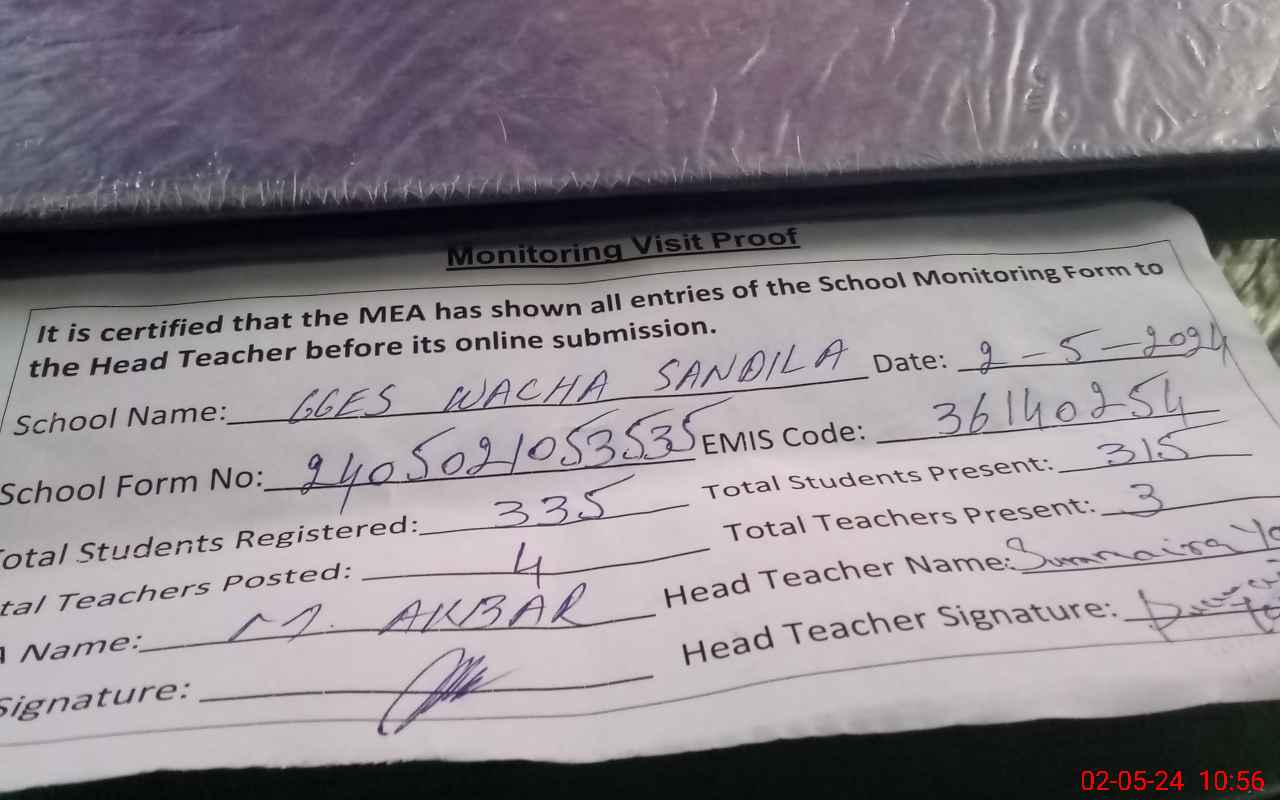 Monitoring Visit Proof
It is certified that the MEA has shown all entries of the School Monitoring Form to
the Head Teacher before its online submission.
School Name: GGES WACHA SANDILA Date: 2-5-2024
School Form No: 2405021053535 EMIS Code: 36140254
otal Students Registered: 335 Total Students Present: 315
tal Teachers Posted: 4 Total Teachers Present: 3
Name: M. AKBAR Head Teacher Name: Summaira
Signature: Head Teacher Signature:
02-05-24 10:56